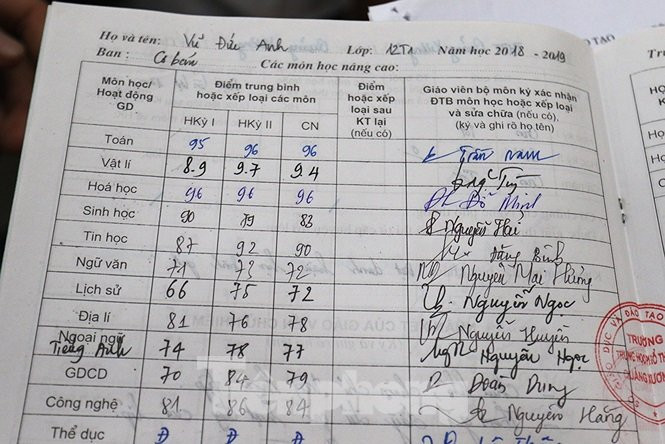 Họ và tên: Vũ Đức Anh Lớp: 12T1 Năm học 2018 - 2019
Ban: Cơ bản Các môn học nâng cao:
Môn học/ Hoạt động GD
Điểm trung bình hoặc xếp loại các môn
HKỳ I HKỳ II CN
Điểm hoặc xếp loại sau KT lại (nếu có)
Giáo viên bộ môn ký xác nhận ĐTB môn học hoặc xếp loại và sửa chữa (nếu có). (ký và ghi rõ họ tên)
Toán 95 96 96 Trần Nam
Vật lí 8.9 9.7 9.4
Hoá học 96 96 96 Đỗ Minh
Sinh học 90 79 83 Nguyễn Hải
Tin học 87 92 90 Đăng Bình
Ngữ văn 71 73 72 Nguyễn Mai Hường
Lịch sử 66 75 72 Nguyễn Ngọc
Địa lí 81 76 78 Nguyễn Huyền
Ngoại ngữ Tiếng Anh 74 78 77 Nguyễn Ngọc
GDCD 70 84 79 Đoàn Dung
Công nghệ 81 86 84 Nguyễn Hằng
Thể dục Đ Đ Đ
TRƯỜNG